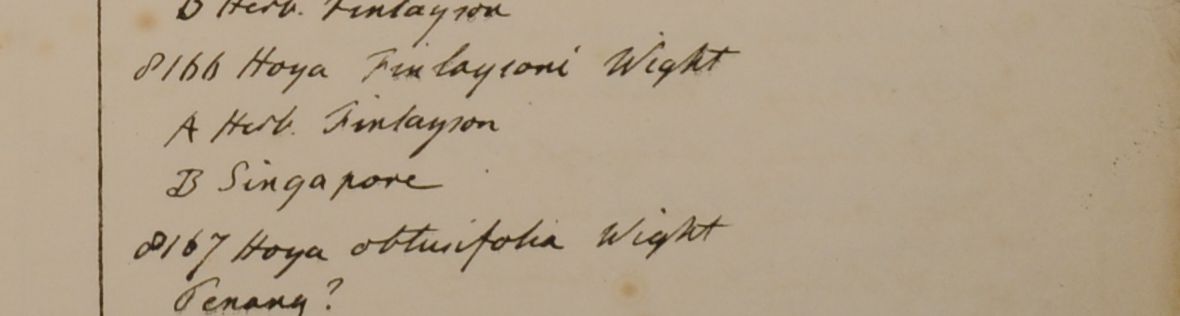 B Herb. Finlayson
8166 Hoya Finlaysoni Wight
A Herb. Finlayson
B Singapore
8167 Hoya obtusifolia Wight
Penang?